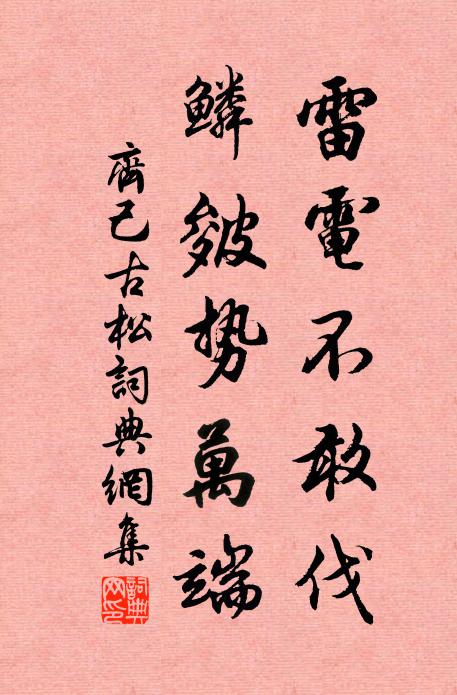 雷電不敢伐
鱗皴勢萬端
齊己古松詞典網集
詞典網印